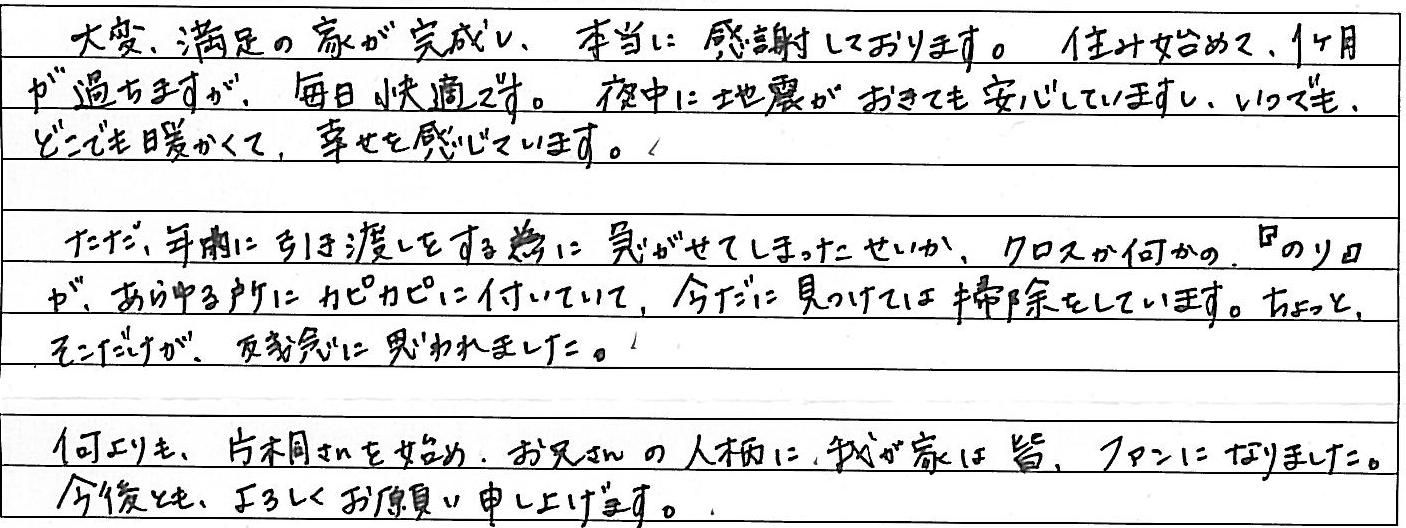 大変、満足の家が完成し、本当に感謝しております。住み始めて、1ケ月
が過ちますが、毎日快適です。夜中に地震がおきても安心していますし、いつでも、
どこでも暖かくて、幸せを感じています。
ただ、年内に引き渡しをする為に急がせてしまったせいか、クロスか何かの『のり』
が、あらゆる所にカピカピに付いていて、今だに見つけては掃除をしています。ちょっと、
そこだけが、残念に思われました。
何よりも、片桐さんを始め、お兄さんの人柄に、我が家は皆、ファンになりました。
今後とも、よろしくお願い申し上げます。